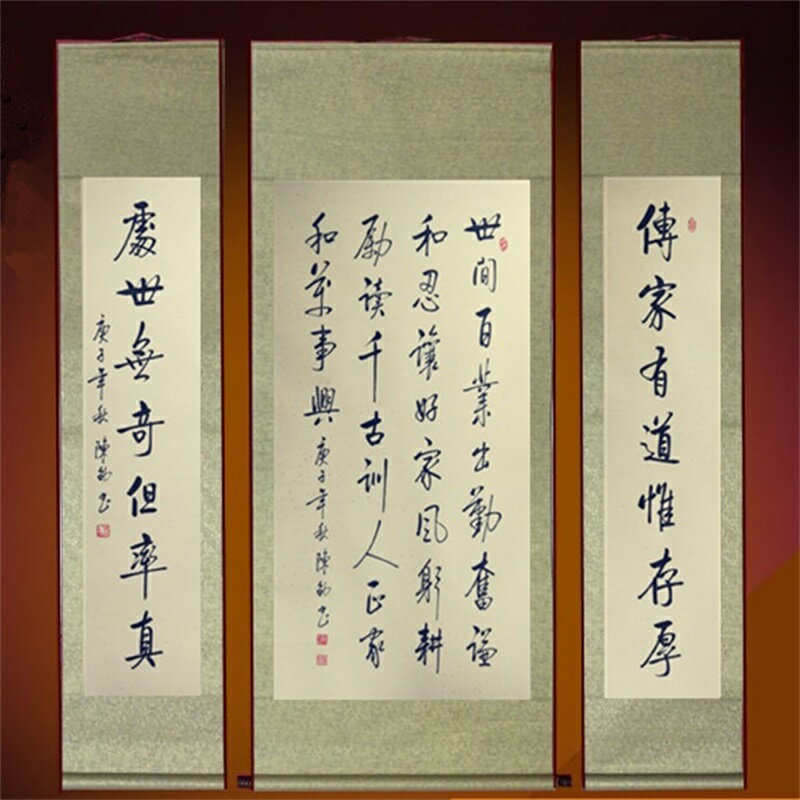 傳家有道惟存厚
世间百業出勤奮谦
和忍讓好家风躬耕
励读千古训人正家
和萬事興
庚子年秋陳
處世無奇但率真
庚子年秋陳